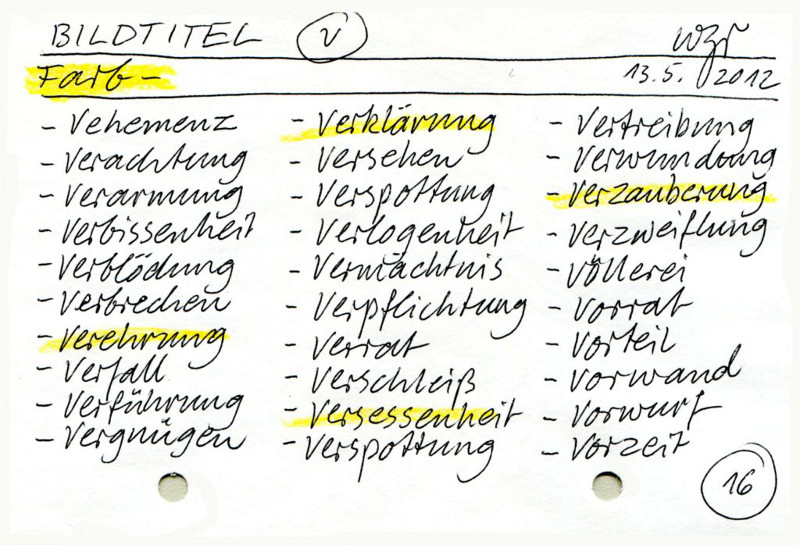 BILDTITEL V
Farb-
13.5.2012
- Vehemenz
- Verachtung
- Verarmung
- Verbissenheit
- Verblödung
- Verbrechen
- Verehrung
- Verfall
- Verführung
- Vergnügen
- Verklärung
- Versehen
- Verspottung
- Verlogenheit
- Vermächtnis
- Verpflichtung
- Verrat
- Verschleiß
- Versessenheit
- Verspottung
- Vertreibung
- Verwundung
- Verzauberung
- Verzweiflung
- Völlerei
- Vorrat
- Vorteil
- Vorwand
- Vorwurf
- Vorzeit
16